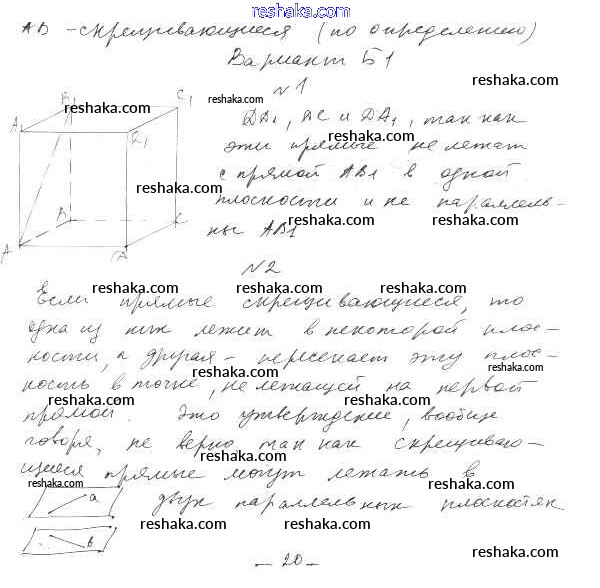 reshaka.com
АВ - скрещивающиеся (по определению)
Вариант Б1
№1
DD1, DC и DA1, так как
эти прямые не лежат
с прямой AB1 в одной
плоскости и не параллель-
ны AB1
B1
C1
A1
D1
B
C
A
D
№2
Если прямые скрещивающиеся, то
одна из них лежит в некоторой плос-
кости, а другая - пересекает эту плос-
кость в точке, не лежащей на первой
прямой. Это утверждение, вообще
говоря, не верно так как скрещиваю-
щиеся прямые могут лежать в
двух параллельных плоскостях
a
b
- 20 -
reshaka.com
reshaka.com
reshaka.com
reshaka.com
reshaka.com
reshaka.com
reshaka.com
reshaka.com
reshaka.com
reshaka.com
reshaka.com
reshaka.com
reshaka.com
reshaka.com
reshaka.com
reshaka.com
reshaka.com
reshaka.com
reshaka.com
reshaka.com
reshaka.com
reshaka.com
reshaka.com
reshaka.com